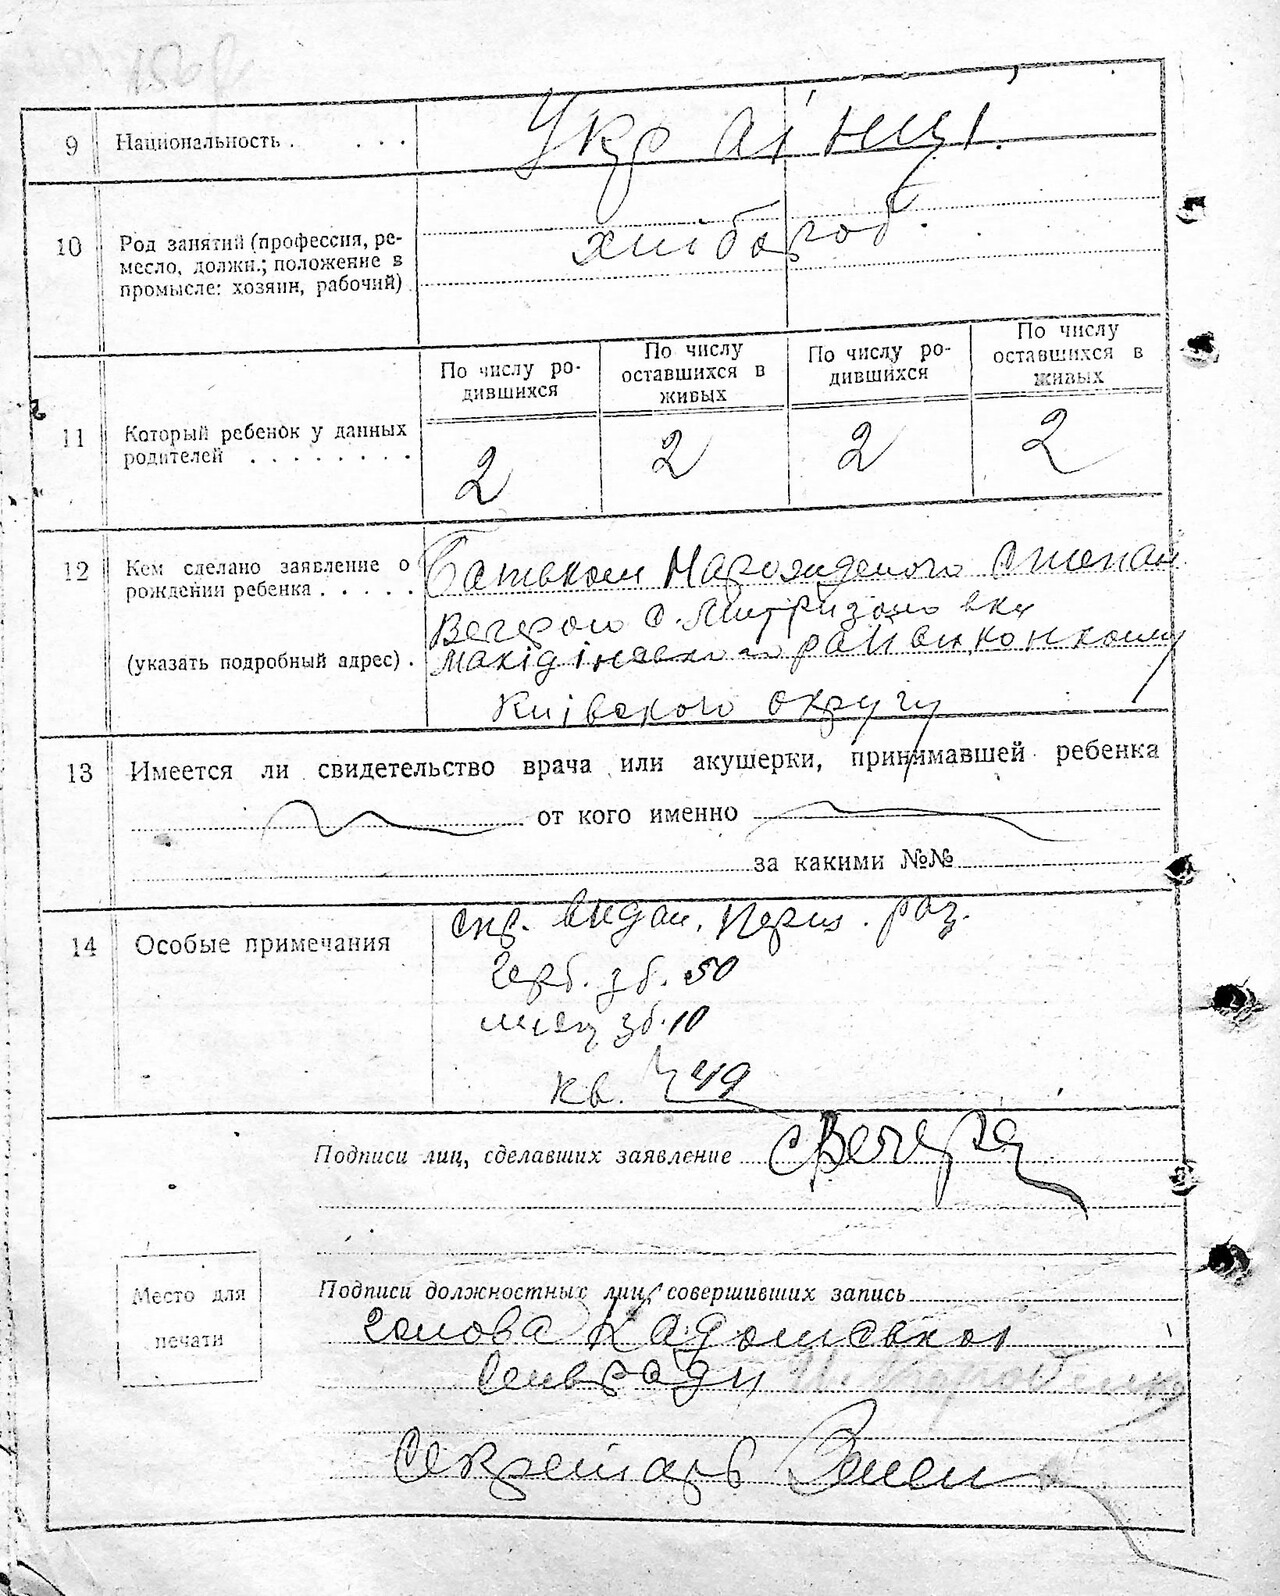 9 Национальность . . . . Українці
10 Род занятий (профессия, ре-
месло, должн.; положение в
промысле: хозяин, рабочий)
хлібороб.
По числу ро-
дившихся
По числу
оставшихся в
живых
По числу ро-
дившихся
По числу
оставшихся в
живых
11 Который ребенок у данных
родителей . . . . . . . .
2 2 2 2
12 Кем сделано заявление о
рождении ребенка . . . . .
(указать подробный адрес) .
Батьком Народженого Степан
Вечерою с.
райвиконкому
Київского округу
13 Имеется ли свидетельство врача или акушерки, принимавшей ребенка
от кого именно
за какими №№
14 Особые примечания
видан.
герб. зб. 50
зб. 10
кв. 49
Подписи лиц, сделавших заявление СВечера
Место для
печати
Подписи должностных лиц, совершивших запись
Голова
Сільради
Секретарь